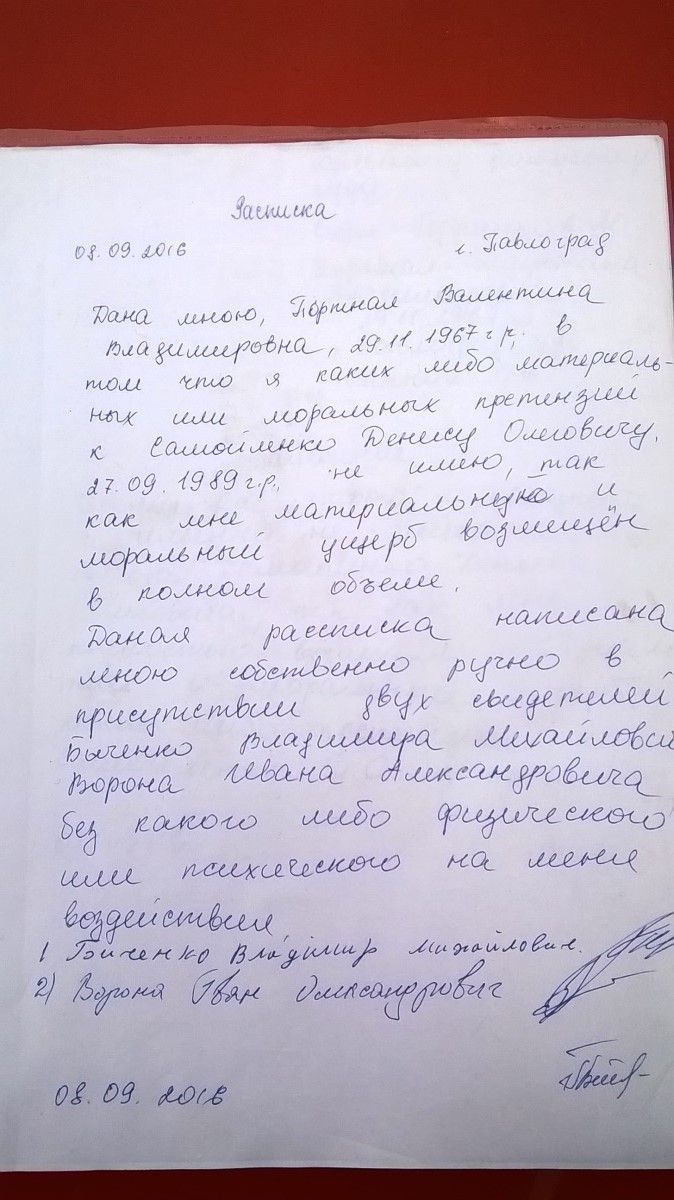 Расписка
08.09.2016 г. Павлоград
Дана мною, Портная Валентина
Владимировна, 29.11.1967 г.р., в
том что я каких либо материаль-
ных или моральных претензий
к Самойленко Денису Олеговичу,
27.09.1989 г.р., не имею, так
как мне материальный и
моральный ущерб возмещён
в полном объеме.
Даная рассписка написана
мною собственно ручно в
присутствии двух свидетелей
Быченко Владимира Михайлович
Ворона Ивана Александровича
без какого либо физического
или психического на меня
воздействия
1 Биченко Владімір Михайлович.
2) Ворона Іван Олександрович
08.09.2016